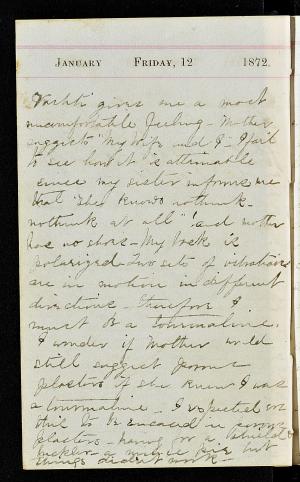 January Friday, 12 1872.
"Vashti" gives me a most
uncomfortable feeling - Mother
suggests "My Wife and I" - I fail
to see how it is attainable
since my sister informs me
that "she knows nothink -
nothink at all" - and mother
has no shoes - My back is
polarized - Two sets of vibrations
are in motion in different
directions - Therefore I
must be a tourmaline.
I wonder if Mother would
still suggest porous
plasters if she knew I was
a tourmaline - I expected
still to be encased in porous
plasters - having for a shield
things didn't work -